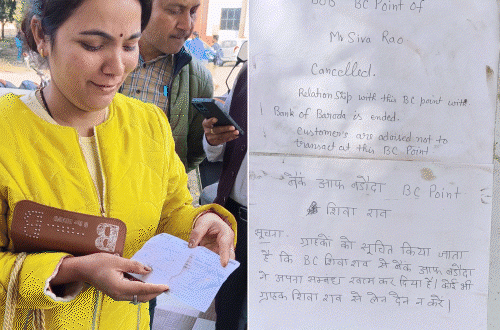 BOB BC Point of
Mr Siva Rao
Cancelled.
Relationship with this BC point with
Bank of Baroda is ended.
Customer's are advised not to
transact at this BC Point
बैंक आफ बडौदा BC Point
शिवा राव
सूचना - ग्राहकों को सूचित किया जाता
है कि BC शिवा राव से बैंक आफ बडौदा
ने अपना सम्बन्ध खत्म कर दिया है। कोई भी
ग्राहक शिवा राव से लेन देन न करें।